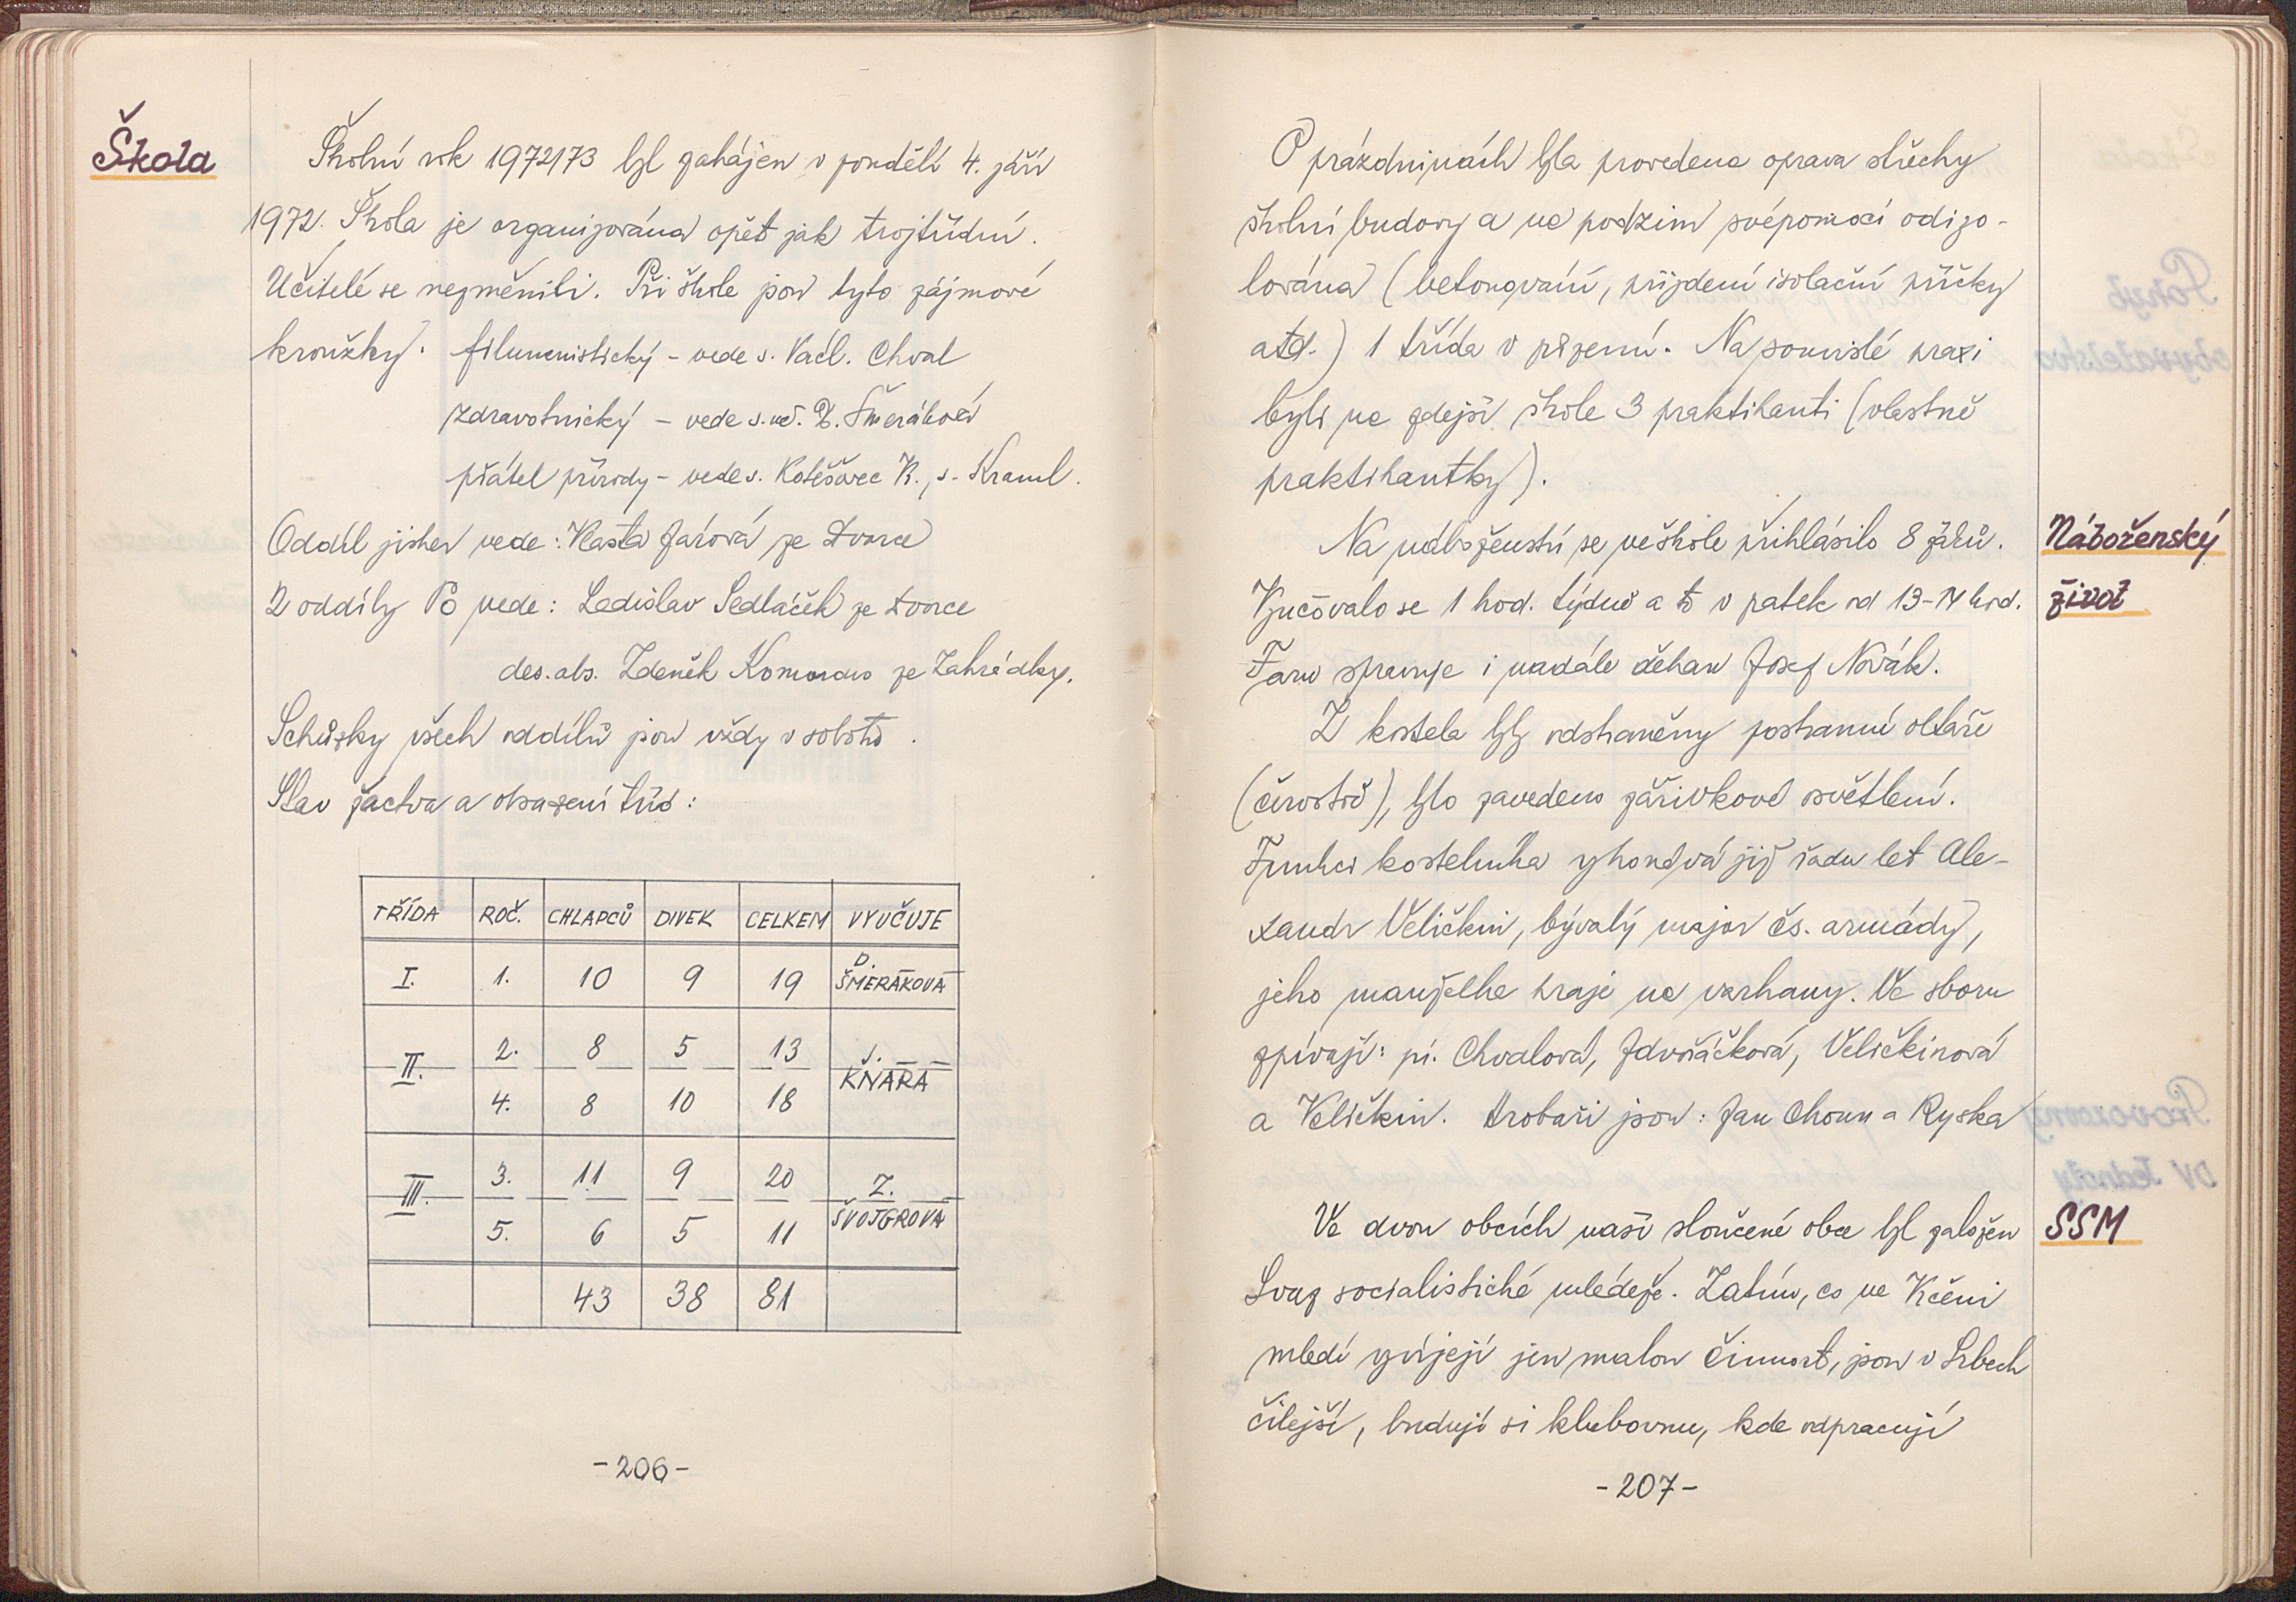 Škola
Školní rok 1972/73 byl zahájen v pondělí 4. září
1972. Škola je organizována opět jak trojtřídní.
Učitelé se nezměnili. Při škole jsou tyto zájmové
kroužky: filumenistický - vede s. Václ. Chval
zdravotnický - vede s. uč. D. Šmeráková
přátel přírody - vede s. Kotěšovec K., s. Kraml.
Oddíl jisker vede: Vlasta Jarová ze Dvorce
2 oddíly PO vede: Ladislav Sedláček ze Dvorce
des. abs. Zdeněk Komorous ze Zahrádky.
Schůzky všech oddílů jsou vždy v sobotu.
Stav žactva a obsazení tříd:
TŘÍDA ROČ. CHLAPCŮ DIVEK CELKEM VYUČUJE
I. 1. 10 9 19 D. ŠMERÁKOVÁ
II. 2. 8 5 13 J. KŇARA
4. 8 10 18
III. 3. 11 9 20 Z. ŠVOJGROVÁ
5. 6 5 11
43 38 81
-206-
O prázdninách byla provedena oprava střechy
školní budovy a na podzim svépomocí odizo-
lována (betonování, přizdení isolační příčky
atd.) 1 třída v přízemí. Na souvislé praxi
byli na zdejší škole 3 praktikanti (vlastně
praktikantky).
Náboženský
život
Na náboženství se ve škole přihlásilo 8 žáků.
Vyučovalo se 1 hod. týdně a to v patek od 13-14 hod.
Faru spravuje i nadále děkan Josef Novák.
Z kostela byly odstraněny postranní oltáře
(), bylo zavedeno zářivkové osvětlení.
Funkci kostelníka vykonává již řadu let Ale-
xandr Veličkin, bývalý major čs. armády,
jeho manželka hraje na varhany. Ve sboru
zpívají: pí. Chvalová, Zdvořáčková, Veličkinová
a Veličkin. Hrobaři jsou: Jan Choun a Ryska
SSM
Ve dvou obcích naší sloučené obce byl založen
Svaz socialistiché mládeže. Zatím, co ve Kčeni
mladí vyvíjejí jen malou činnost, jsou v Srbech
čilejší, budují si klubovnu, kde odpracují
-207-